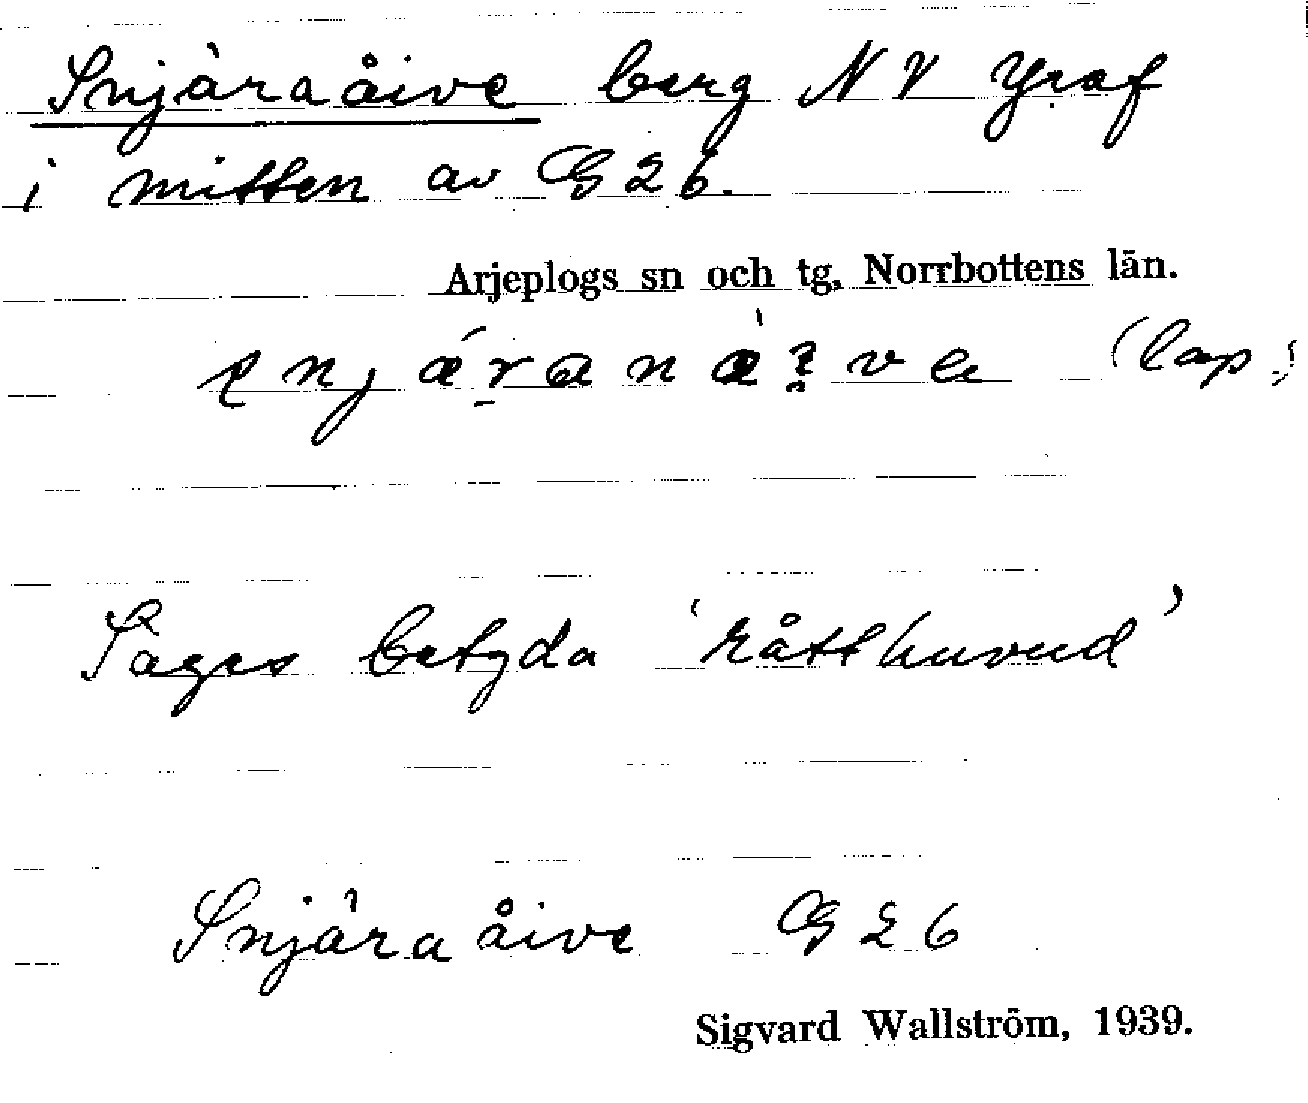 Snjàraåive berg N V Graf
i mitten av G 26.
Arjeplogs sn och tg, Norrbottens län.
(lap.)
Säges betyda 'råtthuvud'
Snjàraåive G 26
Sigvard Wallström, 1939.